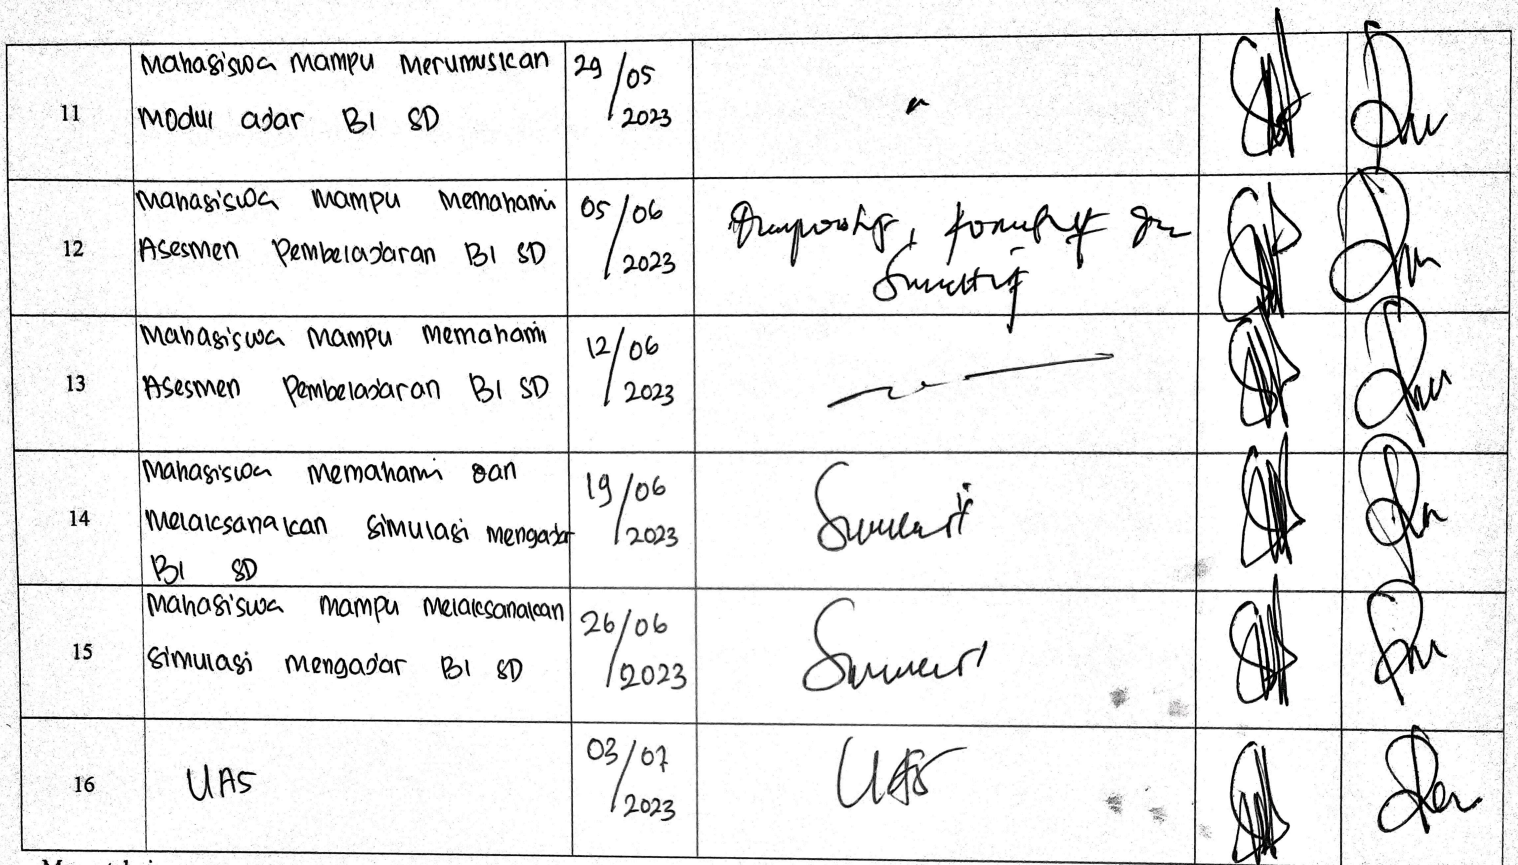 11
Mahasiswa Mampu Merumuskan
Modul ajar BI SD
29/05
2023
"
12
Mahasiswa Mampu Memahami
Asesmen Pembelajaran BI SD
05/06
2023
13
Mahasiswa Mampu Memahami
Asesmen Pembelajaran BI SD
12/06
2023
14
Mahasiswa Memahami dan
Melaksanakan Simulasi Mengajar
BI SD
19/06
2023
15
Mahasiswa Mampu Melaksanakan
Simulasi Mengajar BI SD
26/06
2023
16
UAS
03/07
2023
UAS